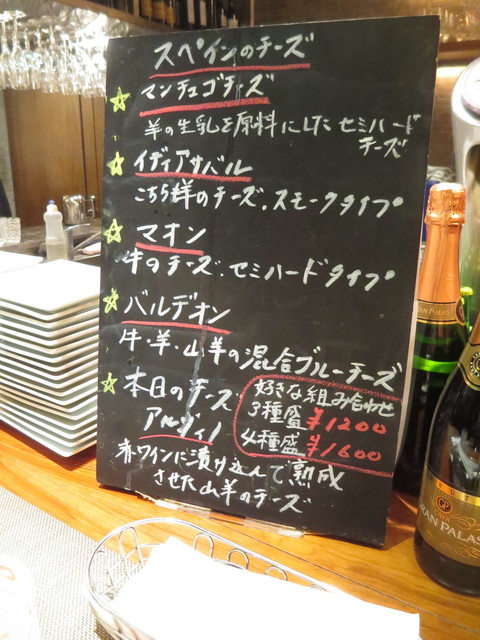 スペインのチーズ
マンチュゴチーズ
羊の生乳を原料にしたセミハード
チーズ
イディアサバル
こちら羊のチーズ.スモークタイプ
マオン
牛のチーズ.セミハードタイプ
バルデオン
牛・羊・山羊の混合ブルーチーズ
本日のチーズ
アルディノ
赤ワインに漬け込んで熟成
させた山羊のチーズ
好きな組み合わせ
3種盛 ¥1200
4種盛 ¥1600
RAN PALAS
BRUT